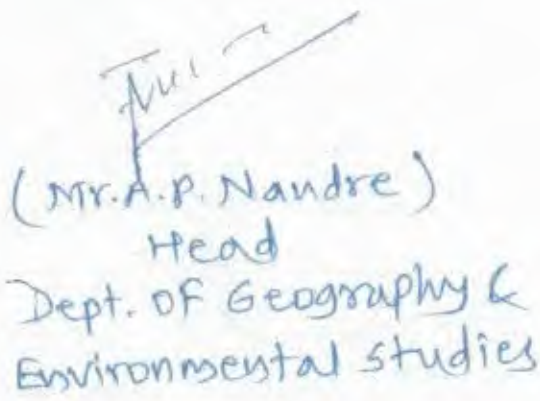 (Mr. A. P. Nandre)
Head
Dept. of Geography &
Environmental studies